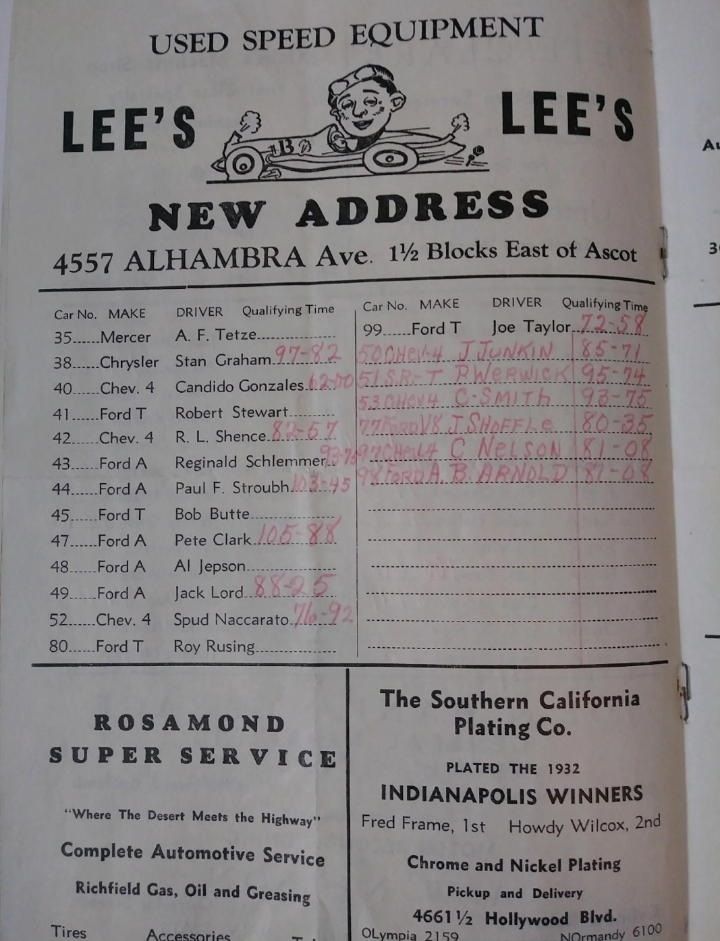 USED SPEED EQUIPMENT
LEE'S LEE'S
13
NEW ADDRESS
4557 ALHAMBRA Ave. 1½ Blocks East of Ascot
Car No. MAKE DRIVER Qualifying Time
35......Mercer A. F. Tetze
38......Chrysler Stan Graham 97-82
40......Chev. 4 Candido Gonzales
41......Ford T Robert Stewart
42......Chev. 4 R. L. Shence 82-57
43......Ford A Reginald Schlemmer
44......Ford A Paul F. Stroubh 103-45
45......Ford T Bob Butte
47......Ford A Pete Clark 105-88
48......Ford A Al Jepson
49......Ford A Jack Lord 88-25
52......Chev. 4 Spud Naccarato 76-92
80......Ford T Roy Rusing
Car No. MAKE DRIVER Qualifying Time
99......Ford T Joe Taylor 72-58
50 CHEV 4 J JUNKIN 85-71
51 S.R-T P. WERWICK 95-74
53 CHEV 4 C. SMITH 93-75
77 FORD V8 J SHOFFLE 80-35
97 CHEV 4 C NELSON 81-08
98 FORD A. B. ARNOLD 87-08
ROSAMOND
SUPER SERVICE
"Where The Desert Meets the Highway"
Complete Automotive Service
Richfield Gas, Oil and Greasing
Tires Accessories
The Southern California
Plating Co.
PLATED THE 1932
INDIANAPOLIS WINNERS
Fred Frame, 1st Howdy Wilcox, 2nd
Chrome and Nickel Plating
Pickup and Delivery
4661½ Hollywood Blvd.
OLympia 2159 NOrmandy 6100